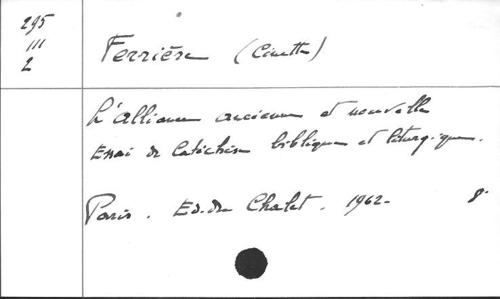 295
III
2
Ferrière (Cinette)
L'alliance ancienne et nouvelle
Essai de Catéchèse biblique et liturgique.
Paris. Ed. du Chalet. 1962- 8°